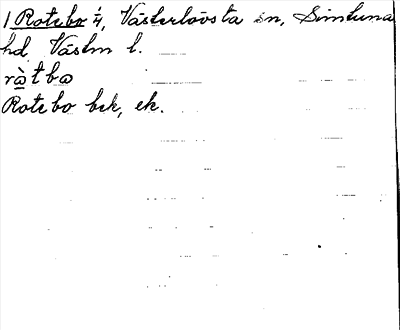 1 Rotebo 4, Västerlövsta sn, Simtuna
hd, Västm l.
Rotebo bek, ek.